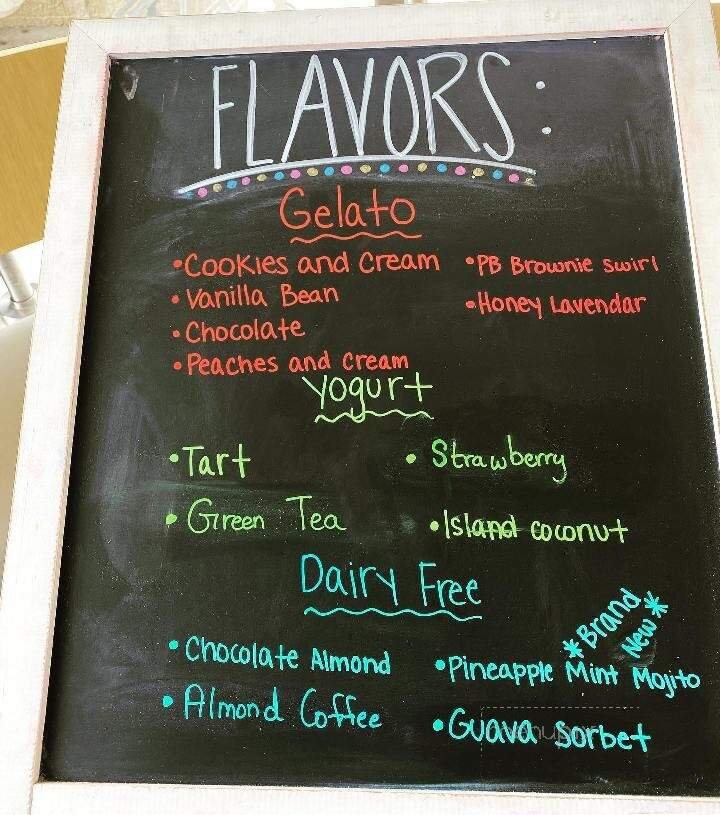 FLAVORS:
Gelato
•Cookies and Cream •PB Brownie swirl
•Vanilla Bean •Honey Lavendar
•Chocolate
•Peaches and Cream
Yogurt
•Tart • Strawberry
• Green Tea •Island coconut
Dairy Free
*Brand New*
•Chocolate Almond •Pineapple Mint Mojito
•Almond Coffee •Guava Sorbet